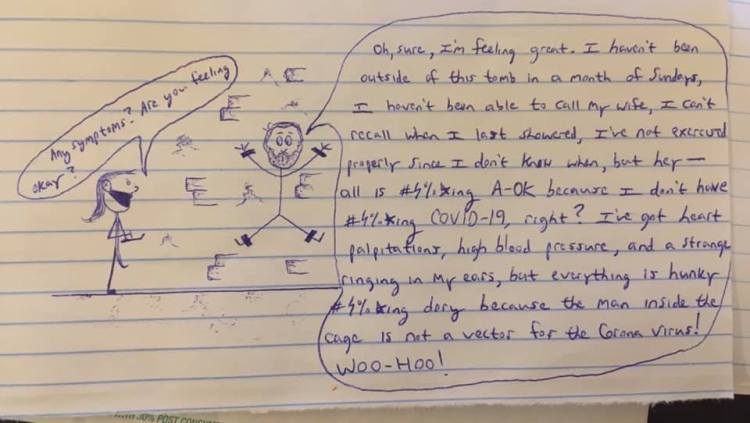 Any symptoms? Are you feeling
okay?
Oh, sure, I'm feeling great. I haven't been
outside of this tomb in a month of Sundays,
I haven't been able to call my wife, I can't
recall when I last showered, I've not exercised
properly since I don't know when, but hey—
all is #$%*ing A-OK because I don't have
#$%*ing COVID-19, right? I've got heart
palpitations, high blood pressure, and a strange
ringing in my ears, but everything is hunky
#$%*ing dory because the man inside the
cage is not a vector for the Corona virus!
WOO-HOO!
30% POST CONSUME